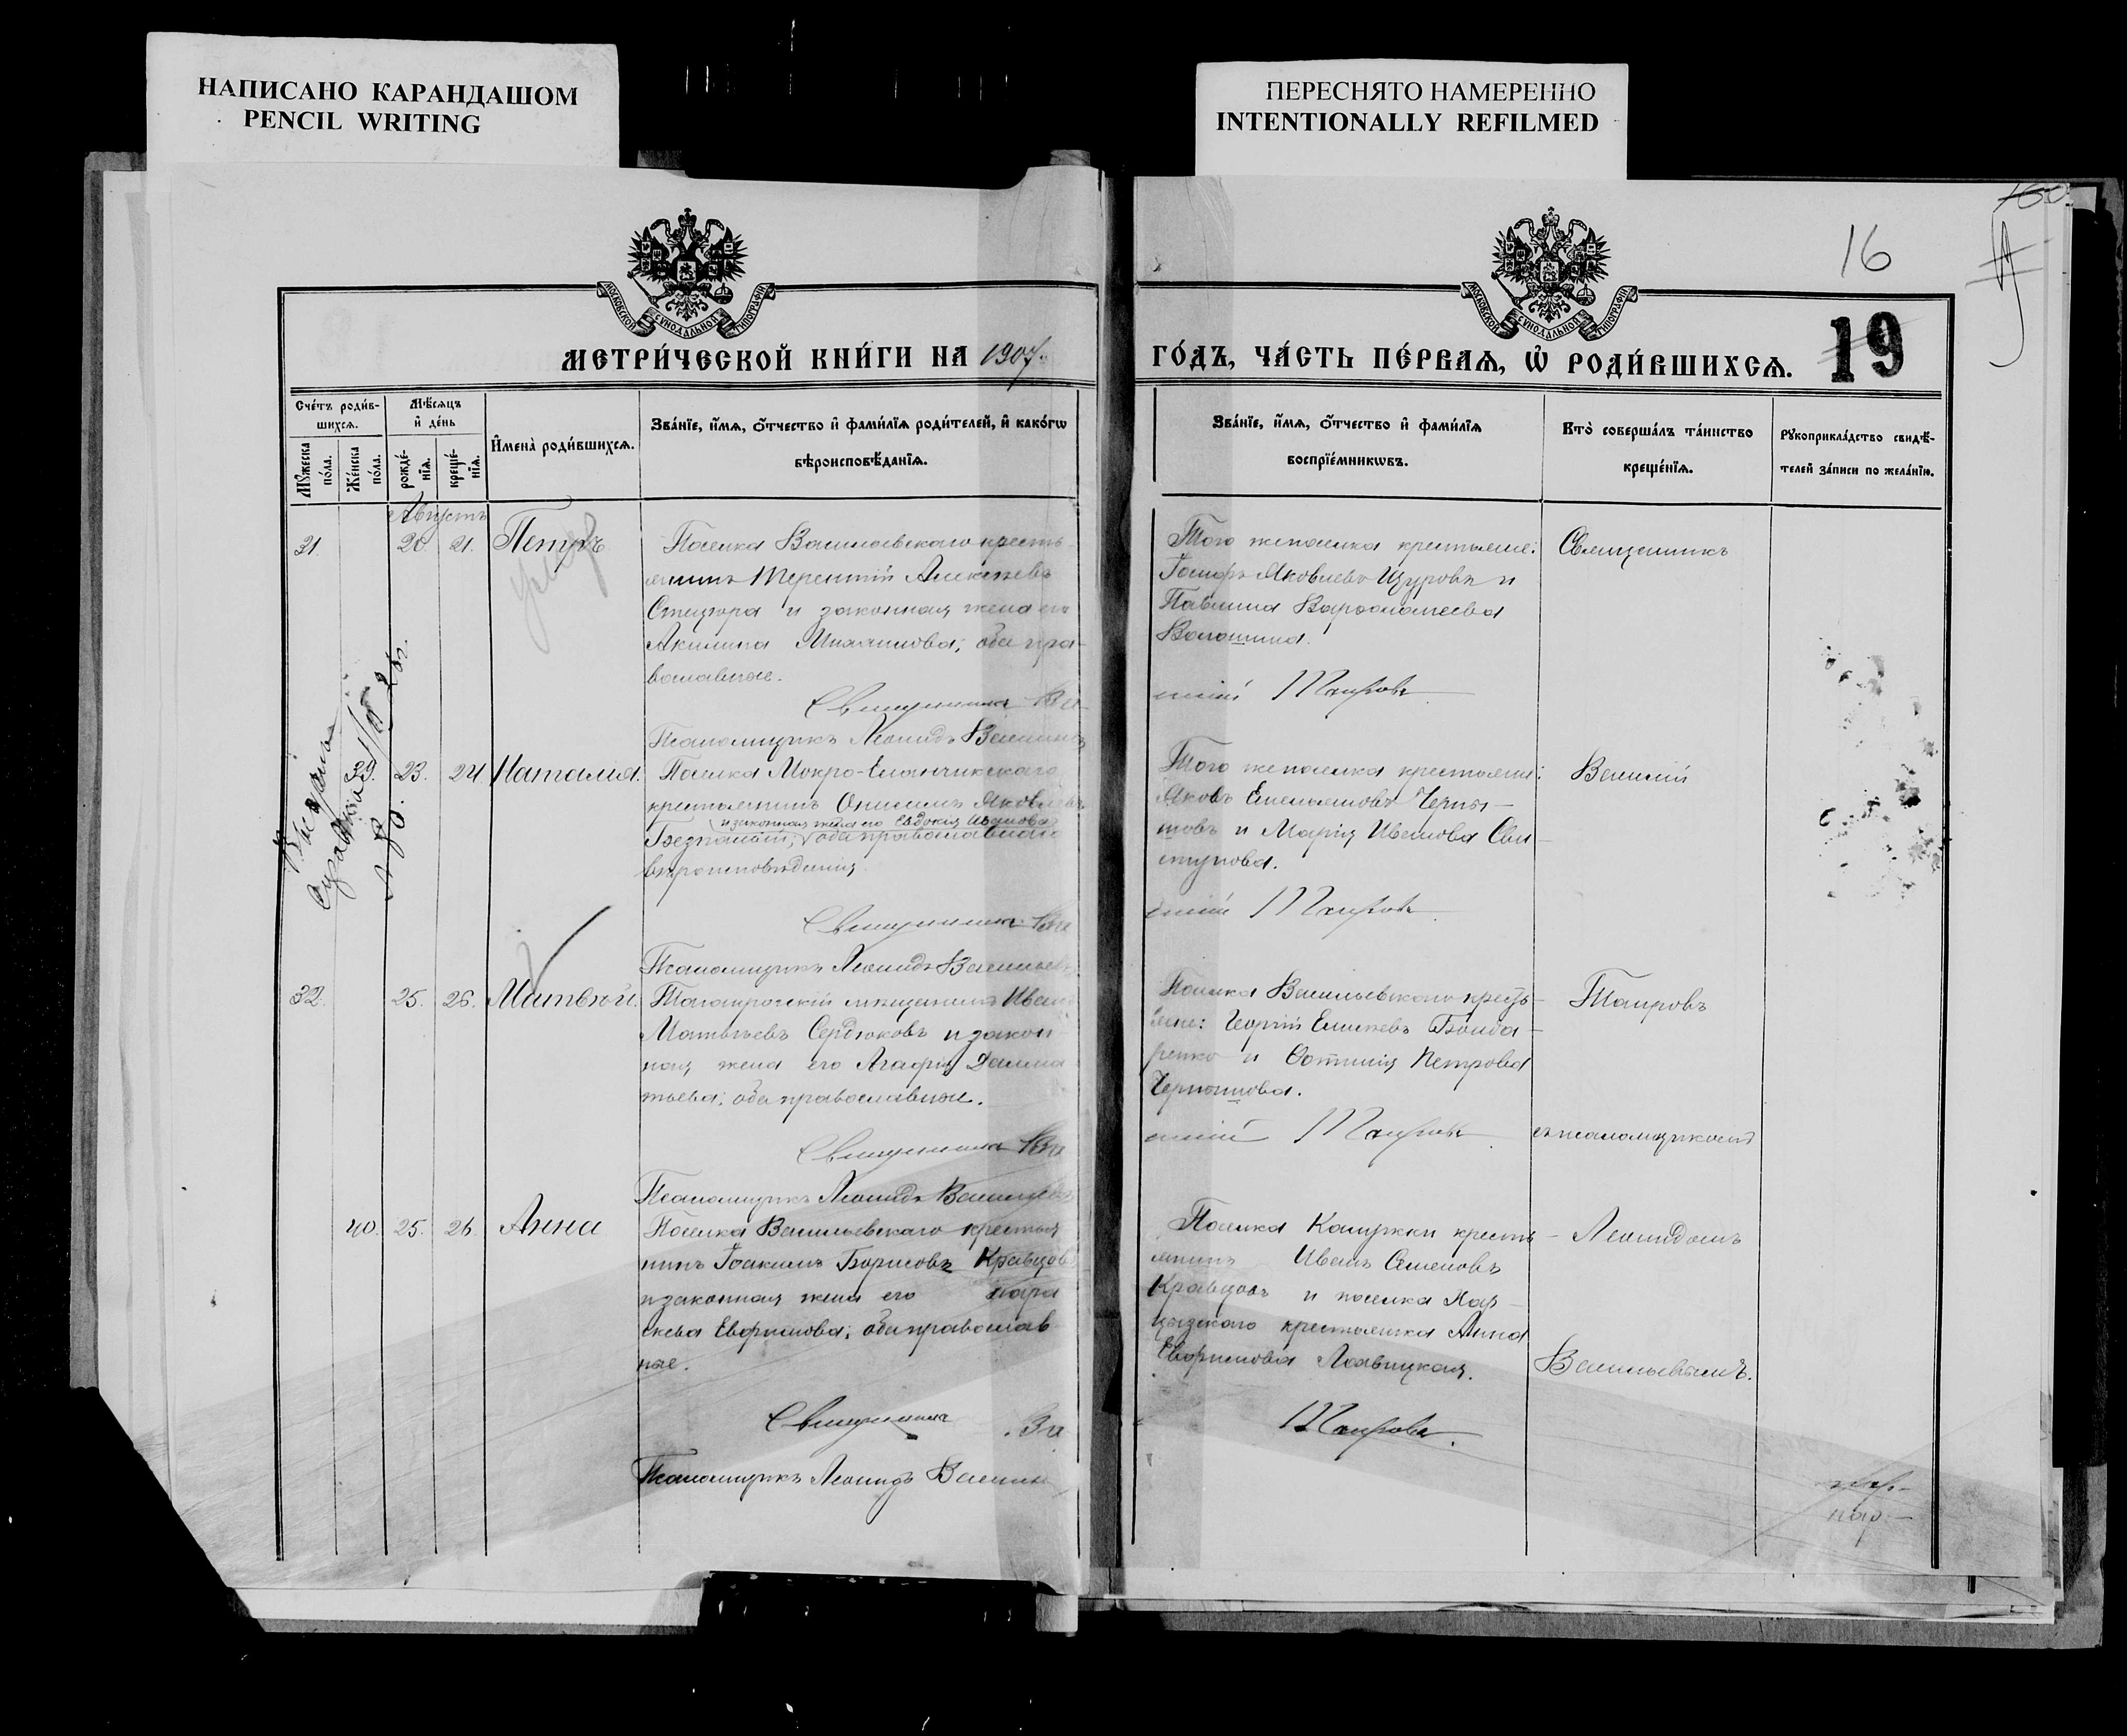 НАПИСАНО КАРАНДАШОМ
PENCIL WRITING
ПЕРЕСНЯТО НАМЕРЕННО
INTENTIONALLY REFILMED
16
19
МОСКОВСКОЙ СѴНОДАЛЬНОЙ ТИПОГРАФІИ
МОСКОВСКОЙ СѴНОДАЛЬНОЙ ТИПОГРАФІИ
МЕТРИ́ЧЕСКОЙ КНИ́ГИ НА 1907.
ГО́ДЪ, ЧА́СТЬ ПЕ́РВАѦ, Ѡ҆ РОДИ́ВШИХСѦ.
Сче́тъ роди́в-
шихсѧ.
Мѣ́сѧцъ
и҆ де́нь
Мꙋ́жеска
по́ла.
Же́нска
по́ла.
рожде́-
нїѧ.
креще́-
нїѧ.
И҆мена̀ роди́вшихсѧ.
Зва́нїе, и҆́мѧ, ѻ҆́тчество и҆ фами́лїѧ роди́телей, и҆ како́гѡ
вѣроисповѣ́данїѧ.
Зва́нїе, и҆́мѧ, ѻ҆́тчество и҆ фами́лїѧ
воспрїе́мникѡвъ.
Кто̀ соверша́лъ та́инство
креще́нїѧ.
Рꙋкоприкла́дство свидѣ́-
телей за́писи по жела́нїю.
Августъ
31. 20. 21. Петръ
умеръ
Поселка Васильевскаго кресть-
янинъ Терентій Алексѣевъ
и законная жена его
Акилина оба пра-
вославные.
Священникъ Ва-
Псаломщикъ Леонидъ Васильевъ
Того же поселка крестьяне:
Яковлевъ Щуровъ и
Варѳоломеева
Волошина.
силій Таировъ
Священникъ
39. 23. 24 Наталія.
Поселка Мокро-Еланчикскаго
крестьянинъ Онисимъ Яковлевъ
и законная жена его Евдокія Иванова
оба православнаго
вѣроисповѣданія
Священникъ Ва
Псаломщикъ Леонидъ Васильевъ
Того же поселка крестьяне:
Яковъ Емельяновъ Черны-
шовъ и Марія Иванова Сви-
стунова.
силій Таировъ
Василій
32. 25. 26. Матвѣй.
Таганрогскій мѣщанинъ Иванъ
Матвѣевъ Сердюковъ и закон
ная жена его Агафія
оба православные.
Священникъ Ва
Псаломщикъ Леонидъ Васильевъ
Поселка Васильевскаго кресть-
яне: Георгій Бонда-
ренко и Петрова
Чернышова.
силій Таировъ
Таировъ
съ псаломщикомъ
40. 25. 26. Анна
Поселка Васильевскаго крестья
нинъ Іоакимъ Борисовъ Кравцовъ
и законная жена его Пара
скева Евфимова; оба православ
ные.
Священникъ Ва
Псаломщикъ Леонидъ Василь
Поселка Калужки кресть-
янинъ Иванъ Семеновъ
Кравцовъ и поселка Хар-
цызскаго крестьянка Анна
Евфимова
Таировъ.
Леонидомъ
Васильевымъ.